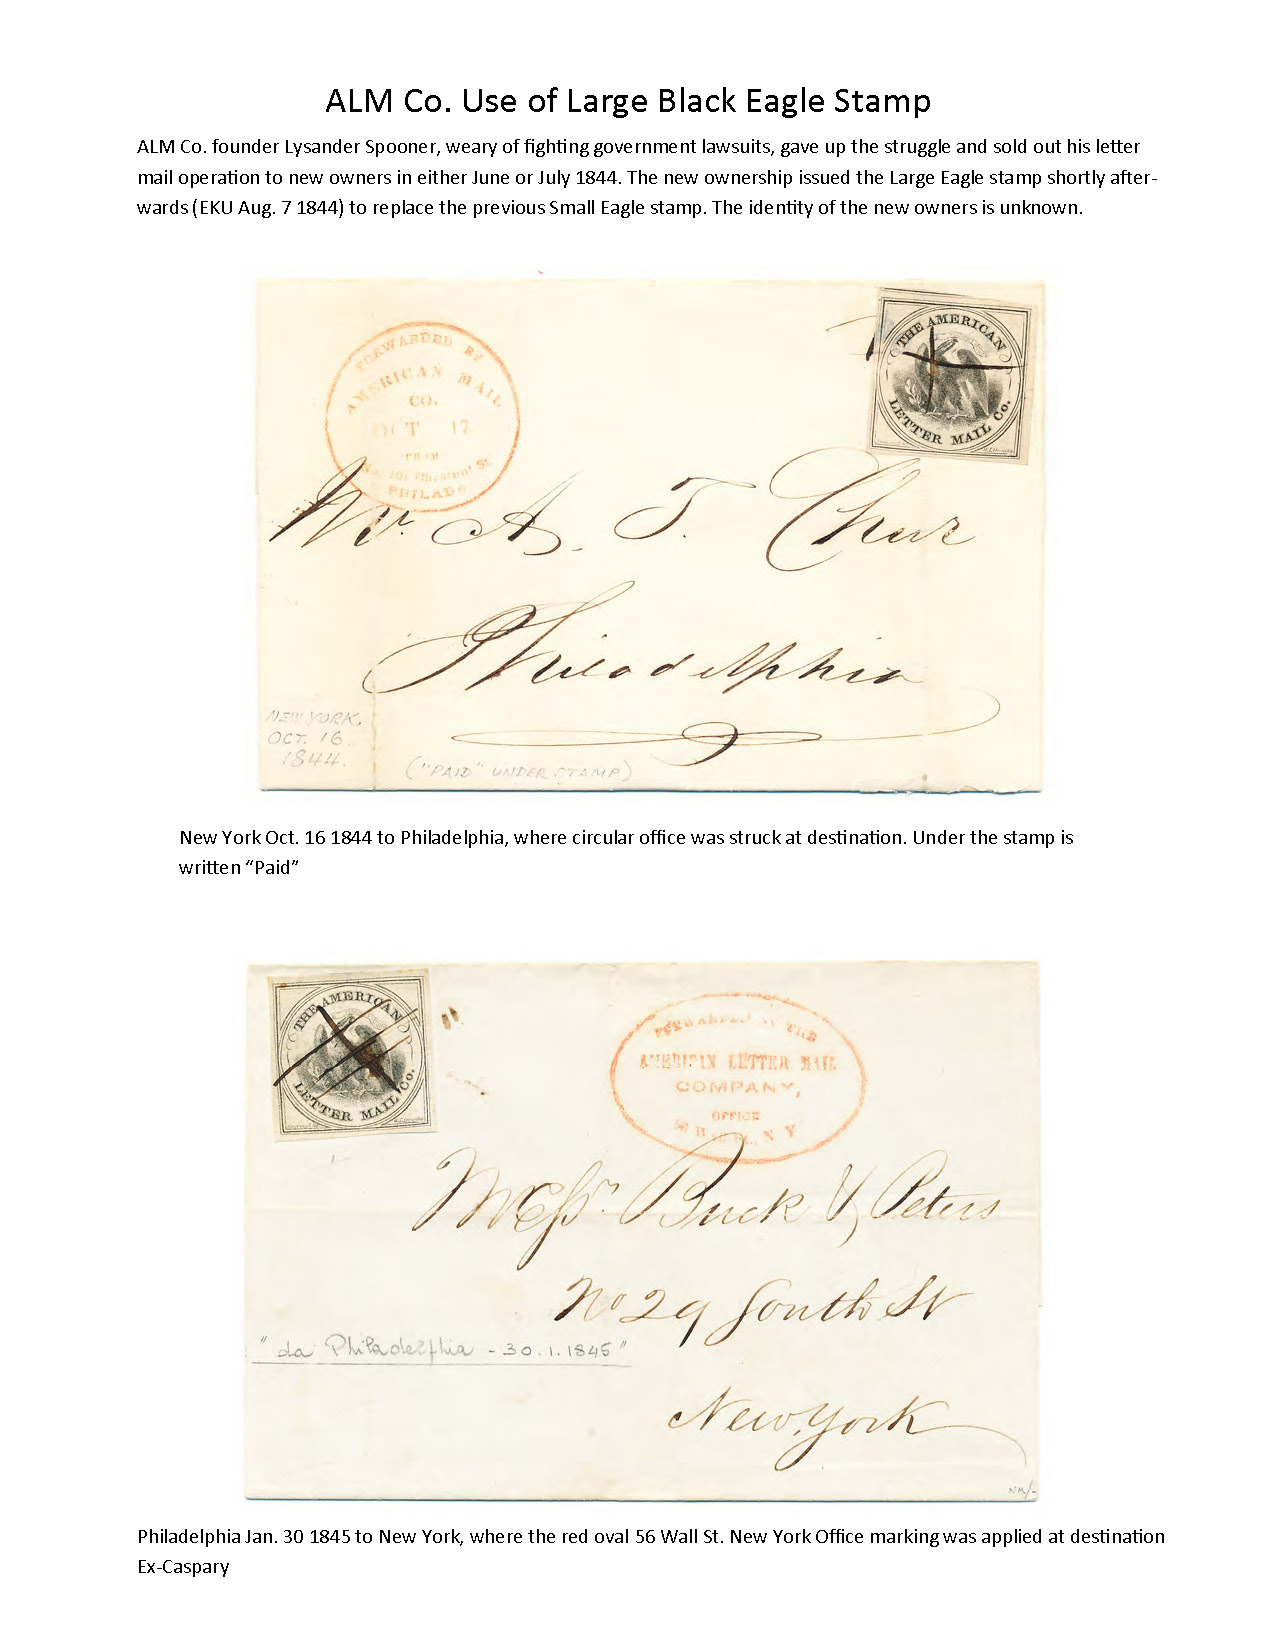 ALM Co. Use of Large Black Eagle Stamp
ALM Co. founder Lysander Spooner, weary of fighting government lawsuits, gave up the struggle and sold out his letter
mail operation to new owners in either June or July 1844. The new ownership issued the Large Eagle stamp shortly after-
wards (EKU Aug. 7 1844) to replace the previous Small Eagle stamp. The identity of the new owners is unknown.
FORWARDED BY
AMERICAN MAIL
CO.
OCT 17
FROM
No. 101 Chesnut St.
PHILADA
THE AMERICAN
LETTER MAIL Co.
Mr. A. T. Chur
Philadelphia
NEW YORK,
OCT. 16
1844.
("PAID" UNDER STAMP)
New York Oct. 16 1844 to Philadelphia, where circular office was struck at destination. Under the stamp is
written “Paid”
THE AMERICAN
LETTER MAIL Co.
FORWARDED BY THE
AMERICAN LETTER MAIL
COMPANY,
OFFICE
N Y
Messrs. Buck & Peters
No 29 South St
"da Philadelphia - 30.1.1845"
New York
Philadelphia Jan. 30 1845 to New York, where the red oval 56 Wall St. New York Office marking was applied at destination
Ex-Caspary